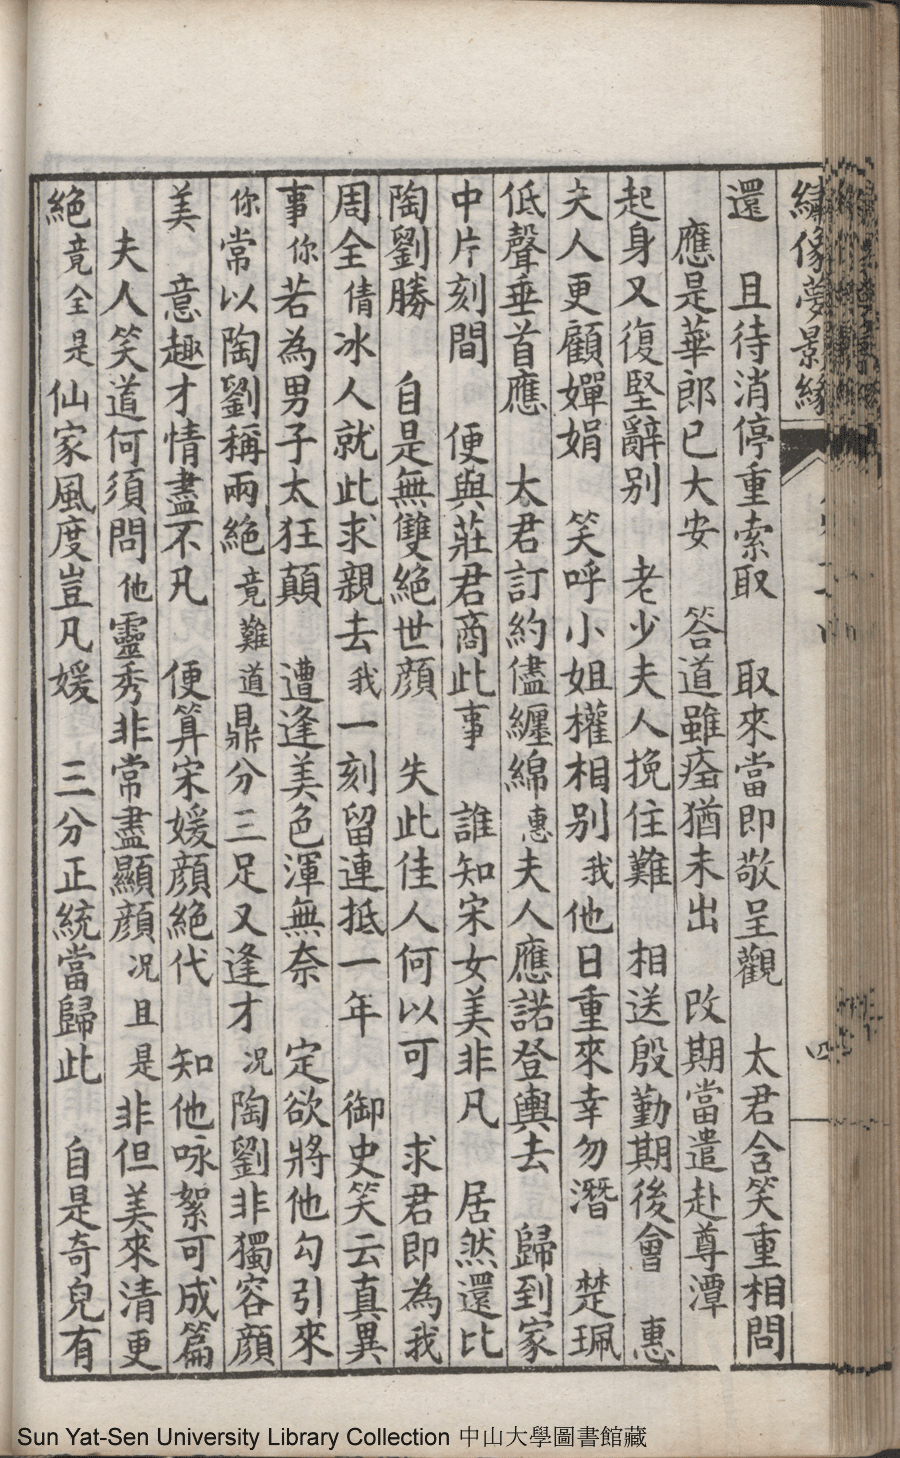 繡像夢影緣
四
還　且待消停重索取　取來當即敬呈觀　太君含笑重相問
應是華郎已大安　答道雖痊猶未出　改期當遣赴尊潭
起身又復堅辭別　老少夫人挽住難　相送殷勤期後會　惠
夫人更顧嬋娟　笑呼小姐權相別　我他日重來幸勿潛　楚珮
低聲垂首應　太君訂約儘纏綿　惠夫人應諾登輿去　歸到家
中片刻間　便與莊君商此事　誰知宋女美非凡　居然還比
陶劉勝　自是無雙絕世顏　失此佳人何以可　求君即為我
周全　倩冰人就此求親去　我一刻留連抵一年　御史笑云真異
事　你若為男子太狂顛　遭逢美色渾無奈　定欲將他勾引來
你常以陶劉稱兩絕　竟難道鼎分三足又逢才　况陶劉非獨容顏
美　意趣才情盡不凡　便算宋媛顏絕代　知他咏絮可成篇
夫人笑道何須問　他靈秀非常盡顯顏　况且是非但美來清更
絕　竟全是仙家風度豈凡媛　三分正統當歸此　自是奇兒有
Sun Yat-Sen University Library Collection 中山大學圖書館藏